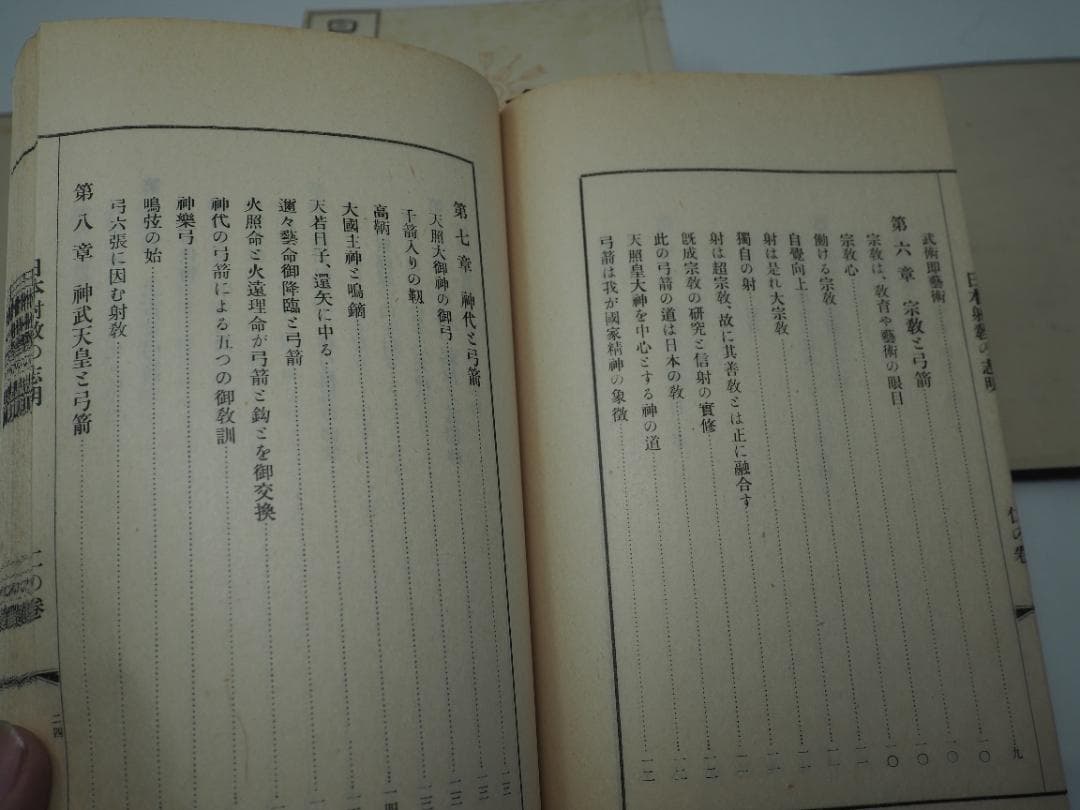 武術即藝術 九
第六章 宗敎と弓箭 一〇
宗敎は、敎育や藝術の眼目 一〇
宗敎心 一〇
働ける宗敎 一〇
自覺向上
射は是れ大宗敎
獨自の射
射は超宗敎、故に其善敎とは正に融合す
旣成宗敎の硏究と信射の實修
此の弓箭の道は日本の敎 一二
天照皇大神を中心とする神の道 一二
弓箭は我が國家精神の象徵 一二
第七章 神代と弓箭 一三
天照大御神の御弓 一三
千箭入りの靱 一三
高鞆
大國主神と鳴鏑
天若日子、還矢に中る
邇々藝命御降臨と弓箭
火照命と火遠理命が弓箭と鈎とを御交換
神代の弓箭による五つの御敎訓
神樂弓
鳴弦の始
弓六張に因む射敎
第八章 神武天皇と弓箭
の卷
二四